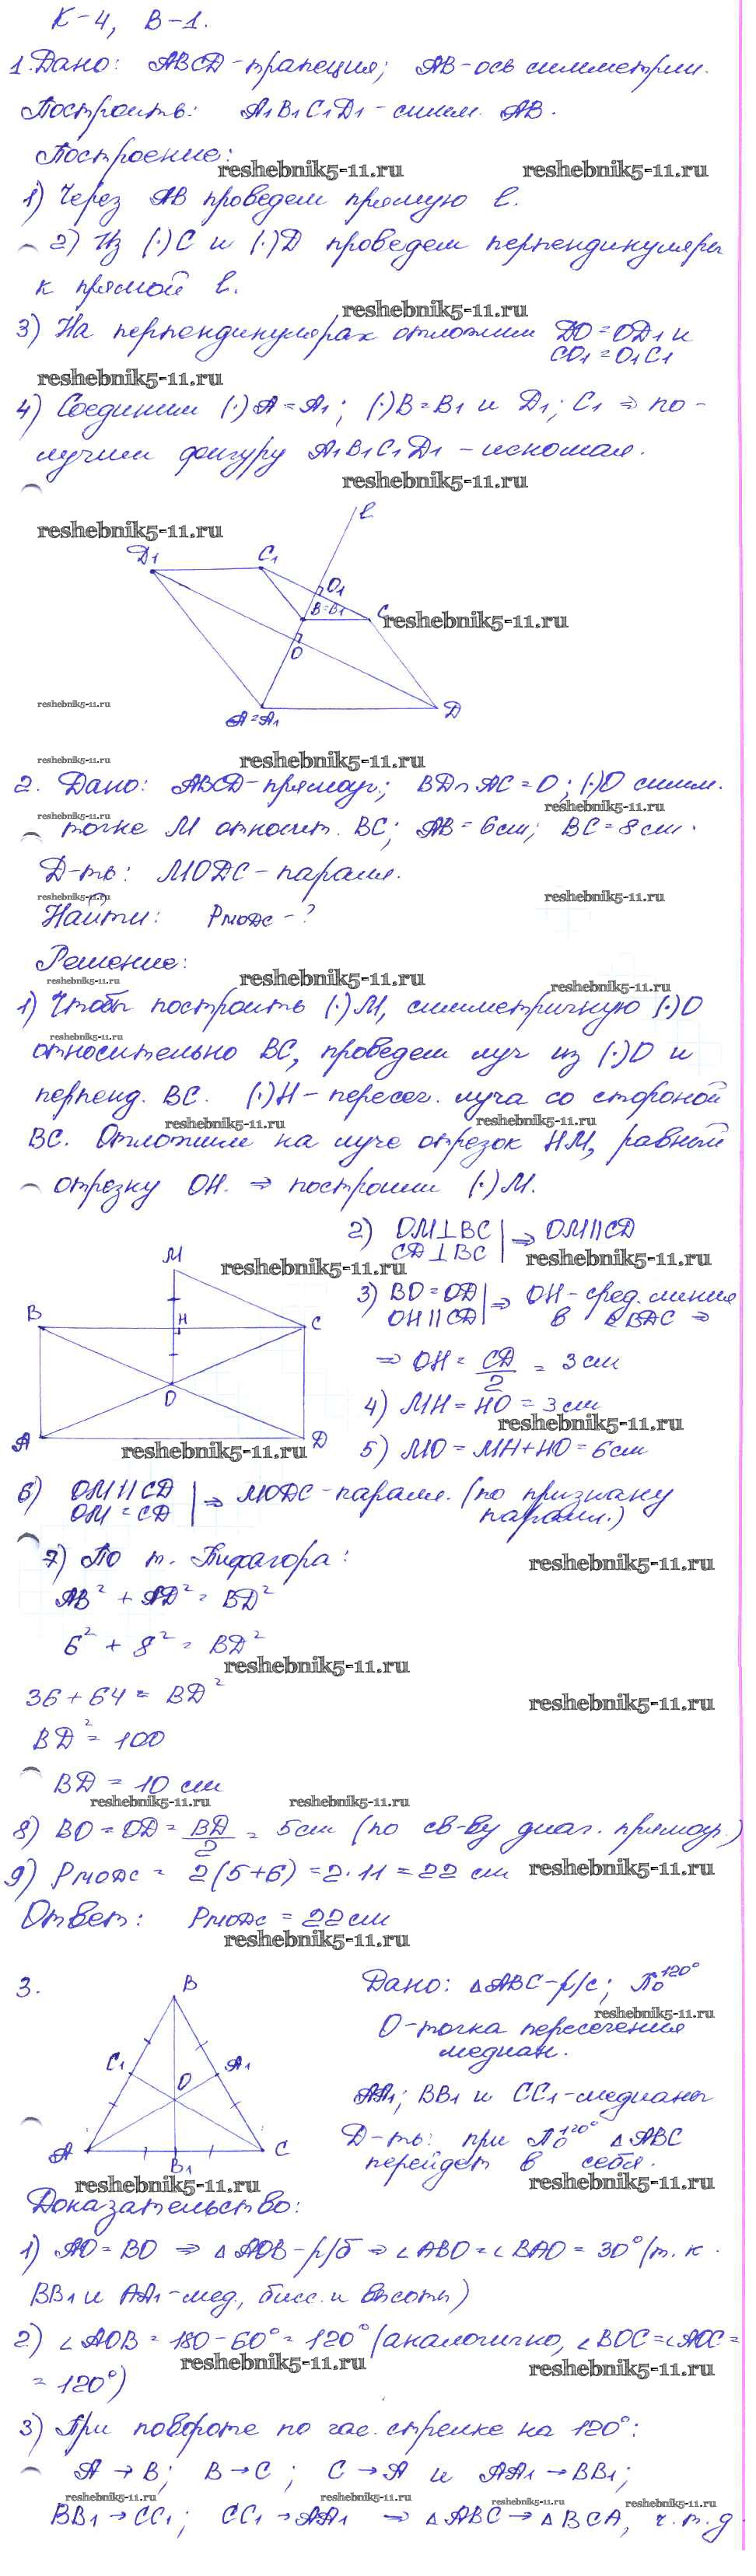 К-4, В-1.
1. Дано: ABCD - трапеция; AB - ось симметрии.
Построить: A₁B₁C₁D₁ - симм. AB.
Построение:
reshebnik5-11.ru reshebnik5-11.ru
1) Через AB проведем прямую l.
2) Из (·)C и (·)D проведем перпендикуляры
к прямой l.
reshebnik5-11.ru
3) На перпендикулярах отложим DO = OD₁ и
CO₁ = O₁C₁
reshebnik5-11.ru
4) Соединим (·)A = A₁; (·)B = B₁ и D₁; C₁ ⇒ по-
лучим фигуру A₁B₁C₁D₁ - искомая.
reshebnik5-11.ru
l
reshebnik5-11.ru
D₁ C₁
O₁
B=B₁ C
reshebnik5-11.ru
O
reshebnik5-11.ru
A=A₁ D
reshebnik5-11.ru reshebnik5-11.ru
2. Дано: ABCD - прямоуг.; BD∩AC = O; (·)O симм.
reshebnik5-11.ru
reshebnik5-11.ru
точке M относит. BC; AB = 6 см; BC = 8 см.
Д-ть: MODC - паралл.
reshebnik5-11.ru reshebnik5-11.ru
Найти: P MODC - ?
Решение:
reshebnik5-11.ru reshebnik5-11.ru reshebnik5-11.ru
1) Чтобы построить (·)M, симметричную (·)O
reshebnik5-11.ru
относительно BC, проведем луч из (·)O и
перпенд. BC. (·)H - пересеч. луча со стороной
reshebnik5-11.ru reshebnik5-11.ru
BC. Отложим на луче отрезок HM, равный
отрезку OH. ⇒ построим (·)M.
2) OM⊥BC | ⇒ OM||CD
CD⊥BC |
reshebnik5-11.ru reshebnik5-11.ru
M
B H C
O
A D
3) BO = OD | ⇒ OH - сред. линия
OH||CD | в ΔBDC ⇒
⇒ OH = CD/2 = 3 см
4) MH = HO = 3 см
reshebnik5-11.ru
reshebnik5-11.ru
5) MO = MH + HO = 6 см
6) OM||CD | ⇒ MODC - паралл. (по признаку
OM = CD | паралл.)
7) По т. Пифагора:
reshebnik5-11.ru
AB² + AD² = BD²
6² + 8² = BD²
reshebnik5-11.ru
36 + 64 = BD²
reshebnik5-11.ru
BD² = 100
BD = 10 см
reshebnik5-11.ru reshebnik5-11.ru
8) BO = OD = BD/2 = 5 см (по св-ву диаг. прямоуг.)
9) P MODC = 2(5+6) = 2·11 = 22 см
reshebnik5-11.ru
Ответ: P MODC = 22 см
reshebnik5-11.ru
3.
B
C₁ A₁
O
A B₁ C
Дано: ΔABC - р/с; П₀¹²⁰°
reshebnik5-11.ru
O - точка пересечения
медиан.
AA₁; BB₁ и CC₁ - медианы
Д-ть: при П₀¹²⁰° ΔABC
перейдет в себя.
reshebnik5-11.ru reshebnik5-11.ru
Доказательство:
1) AO = BO ⇒ ΔAOB - р/б ⇒ ∠ABO = ∠BAO = 30° (т.к.
BB₁ и AA₁ - мед., бисс. и высоты)
2) ∠AOB = 180 - 60° = 120° (аналогично, ∠BOC = ∠AOC =
reshebnik5-11.ru reshebnik5-11.ru
= 120°)
3) При повороте по час. стрелке на 120°:
A → B; B → C; C → A и AA₁ → BB₁;
reshebnik5-11.ru reshebnik5-11.ru reshebnik5-11.ru reshebnik5-11.ru
BB₁ → CC₁; CC₁ → AA₁ ⇒ ΔABC → ΔBCA, ч.т.д.